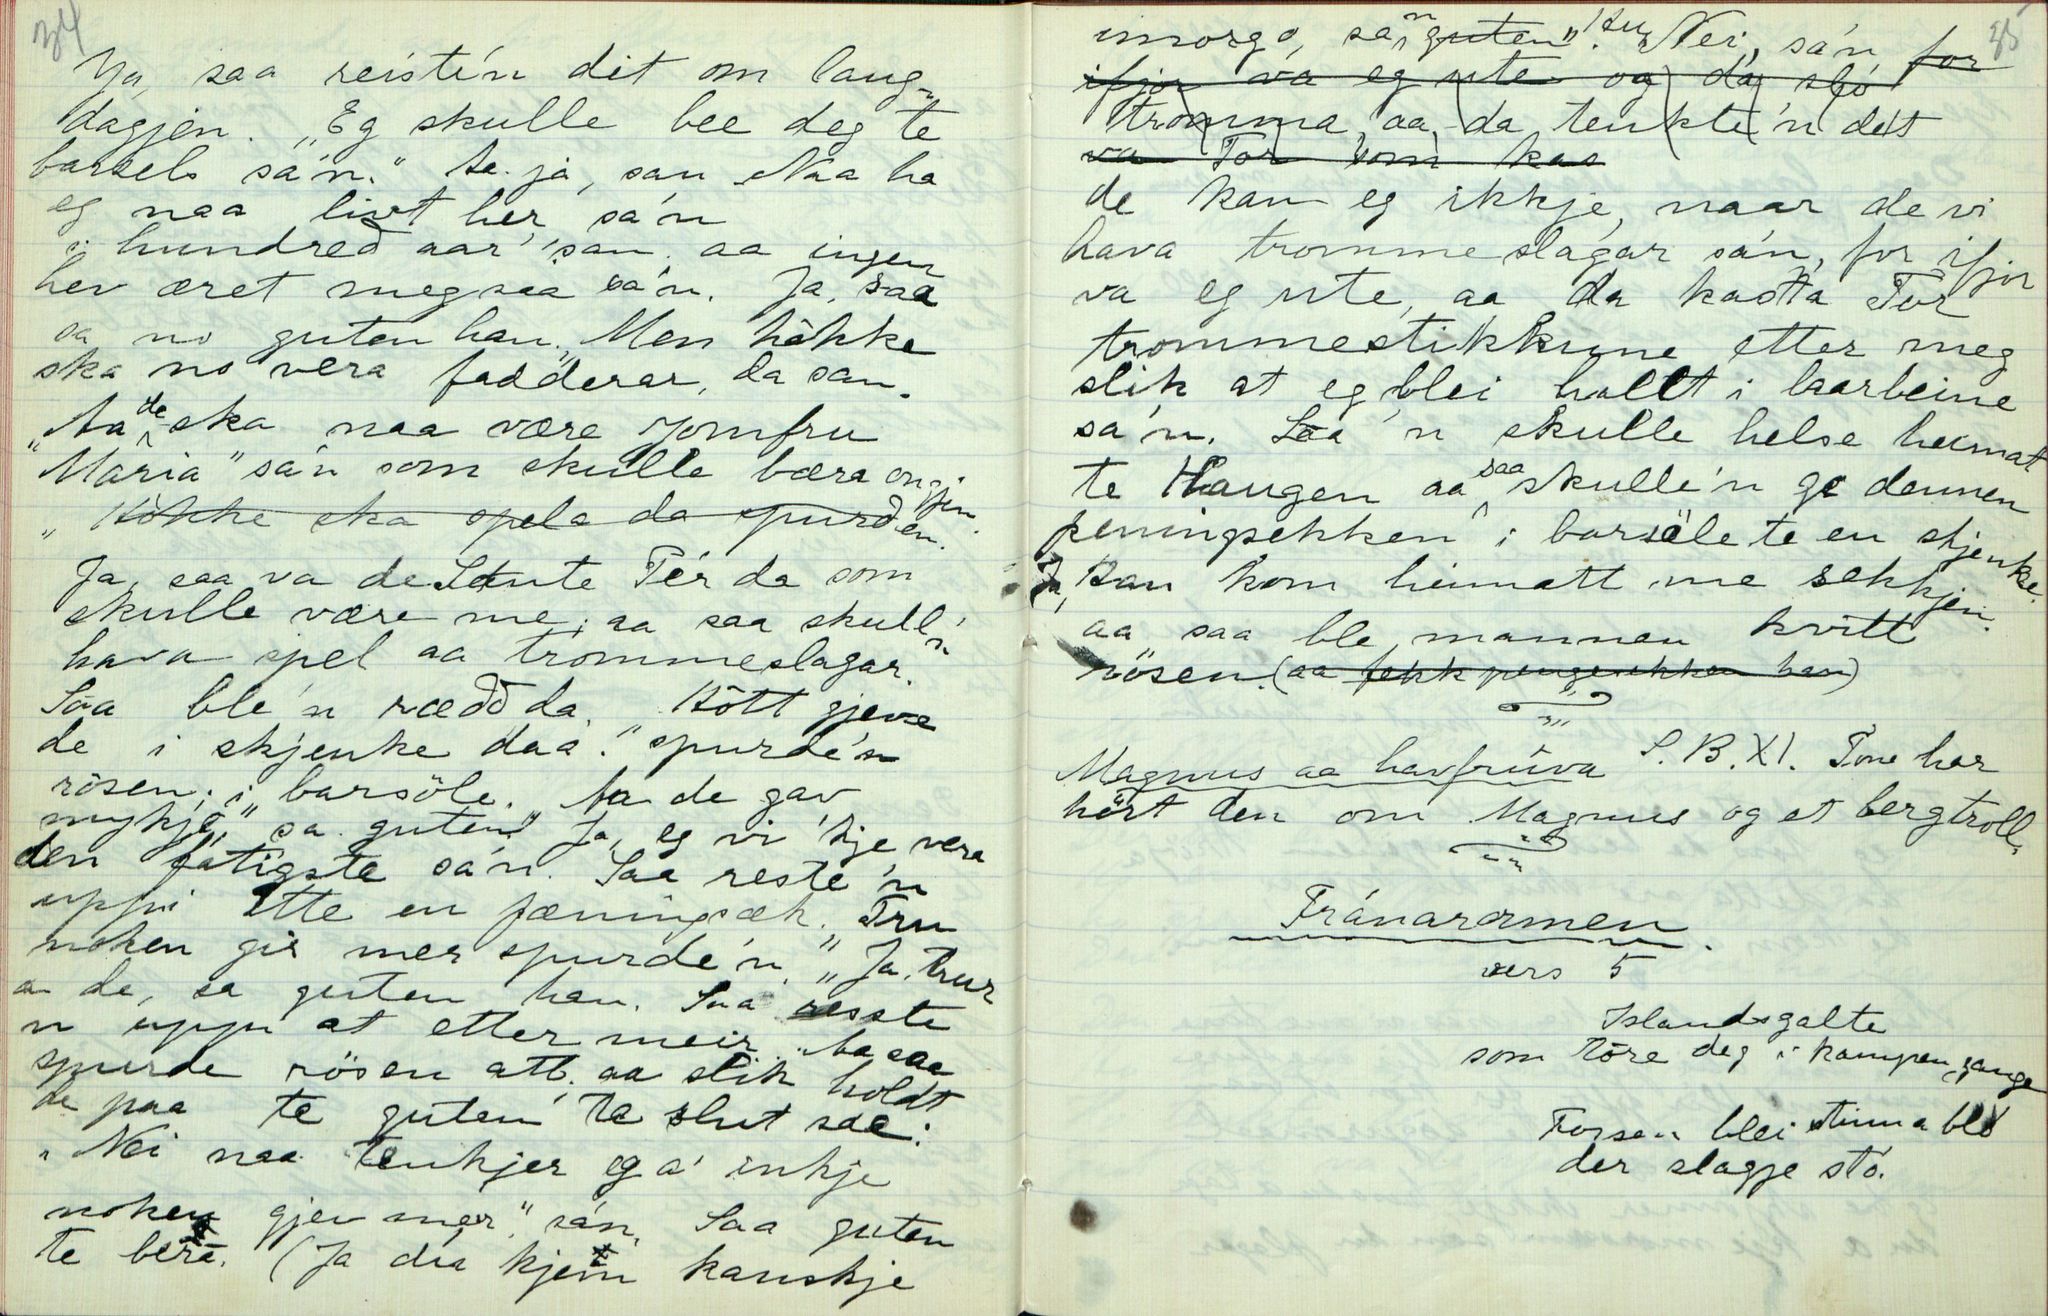 34
Ja, saa reiste'n dit om laug-
dagjen. "Eg skulle bee deg te
barsels sa'n." Aa ja, san Naa ha
eg naa livt her, sa'n
i hundred aar, san, aa ingen
hev æret meg saa sa'n. Ja, saa
sa no guten han, "Men håkke
ska no vera fadderar, da san.
"Aa de ska naa være jomfru
Maria" sa'n som skulle bæra ongjin.
"Hökke ska spela da spurden.
Ja, saa va de Sante Pér da som
skulle være me, aa saa skull'n
hava spel aa trommeslagar.
Saa ble'n rædd da. Hött gjeve
de i skjenke daa." spurde'n
rösen, i barsöle. Aa de gav
mykje", sa guten. Ja, eg vi 'kje vera
den fatigste sa'n. Saa reste'n
uppi ette en pæningsæk. "Tru
noken gir mer spurde'n." "Ja, trur
a de, sa guten han. Saa resste
n uppi at etter meir. Aa saa
spurde rösen att, aa slik holdt
de paa te guten te slut sae:
"Nei naa tenkjer eg a' inkje
noken gjev mer," sa'n. Saa guten
te bera. (Ja dia kjem kanskje
35
imorgo, sa'n guten". Nei, sa'n for
ifjor va eg ute og da slo
tromma, aa da tenkte'n det
va Tor som kas
de kan eg ikkje, naar de vi
hava trommeslagar sa'n, for ifjor
va eg ute, aa da kasta Tor
trommestikkune etter meg
slik at eg blei hallt i laarbeine
sa'n. Saa'n skulle helse heimat
te Haugen aa saa skulle'n ge dennen
peningsekken i barsöle te en skjenke.
Ja, Han kom heimatt me sekkjen.
aa saa ble mannen kvitt
rösen. (aa fekk pengesekken han)
Magnus aa havfrúva S. B. XI. Tone har
hört den om Magnus og et bergtroll.
Fránarormen.
vers 5
Islandsgalte
som töre deg i kampen gange
Forsen blei stinna blo
der slagje sto.